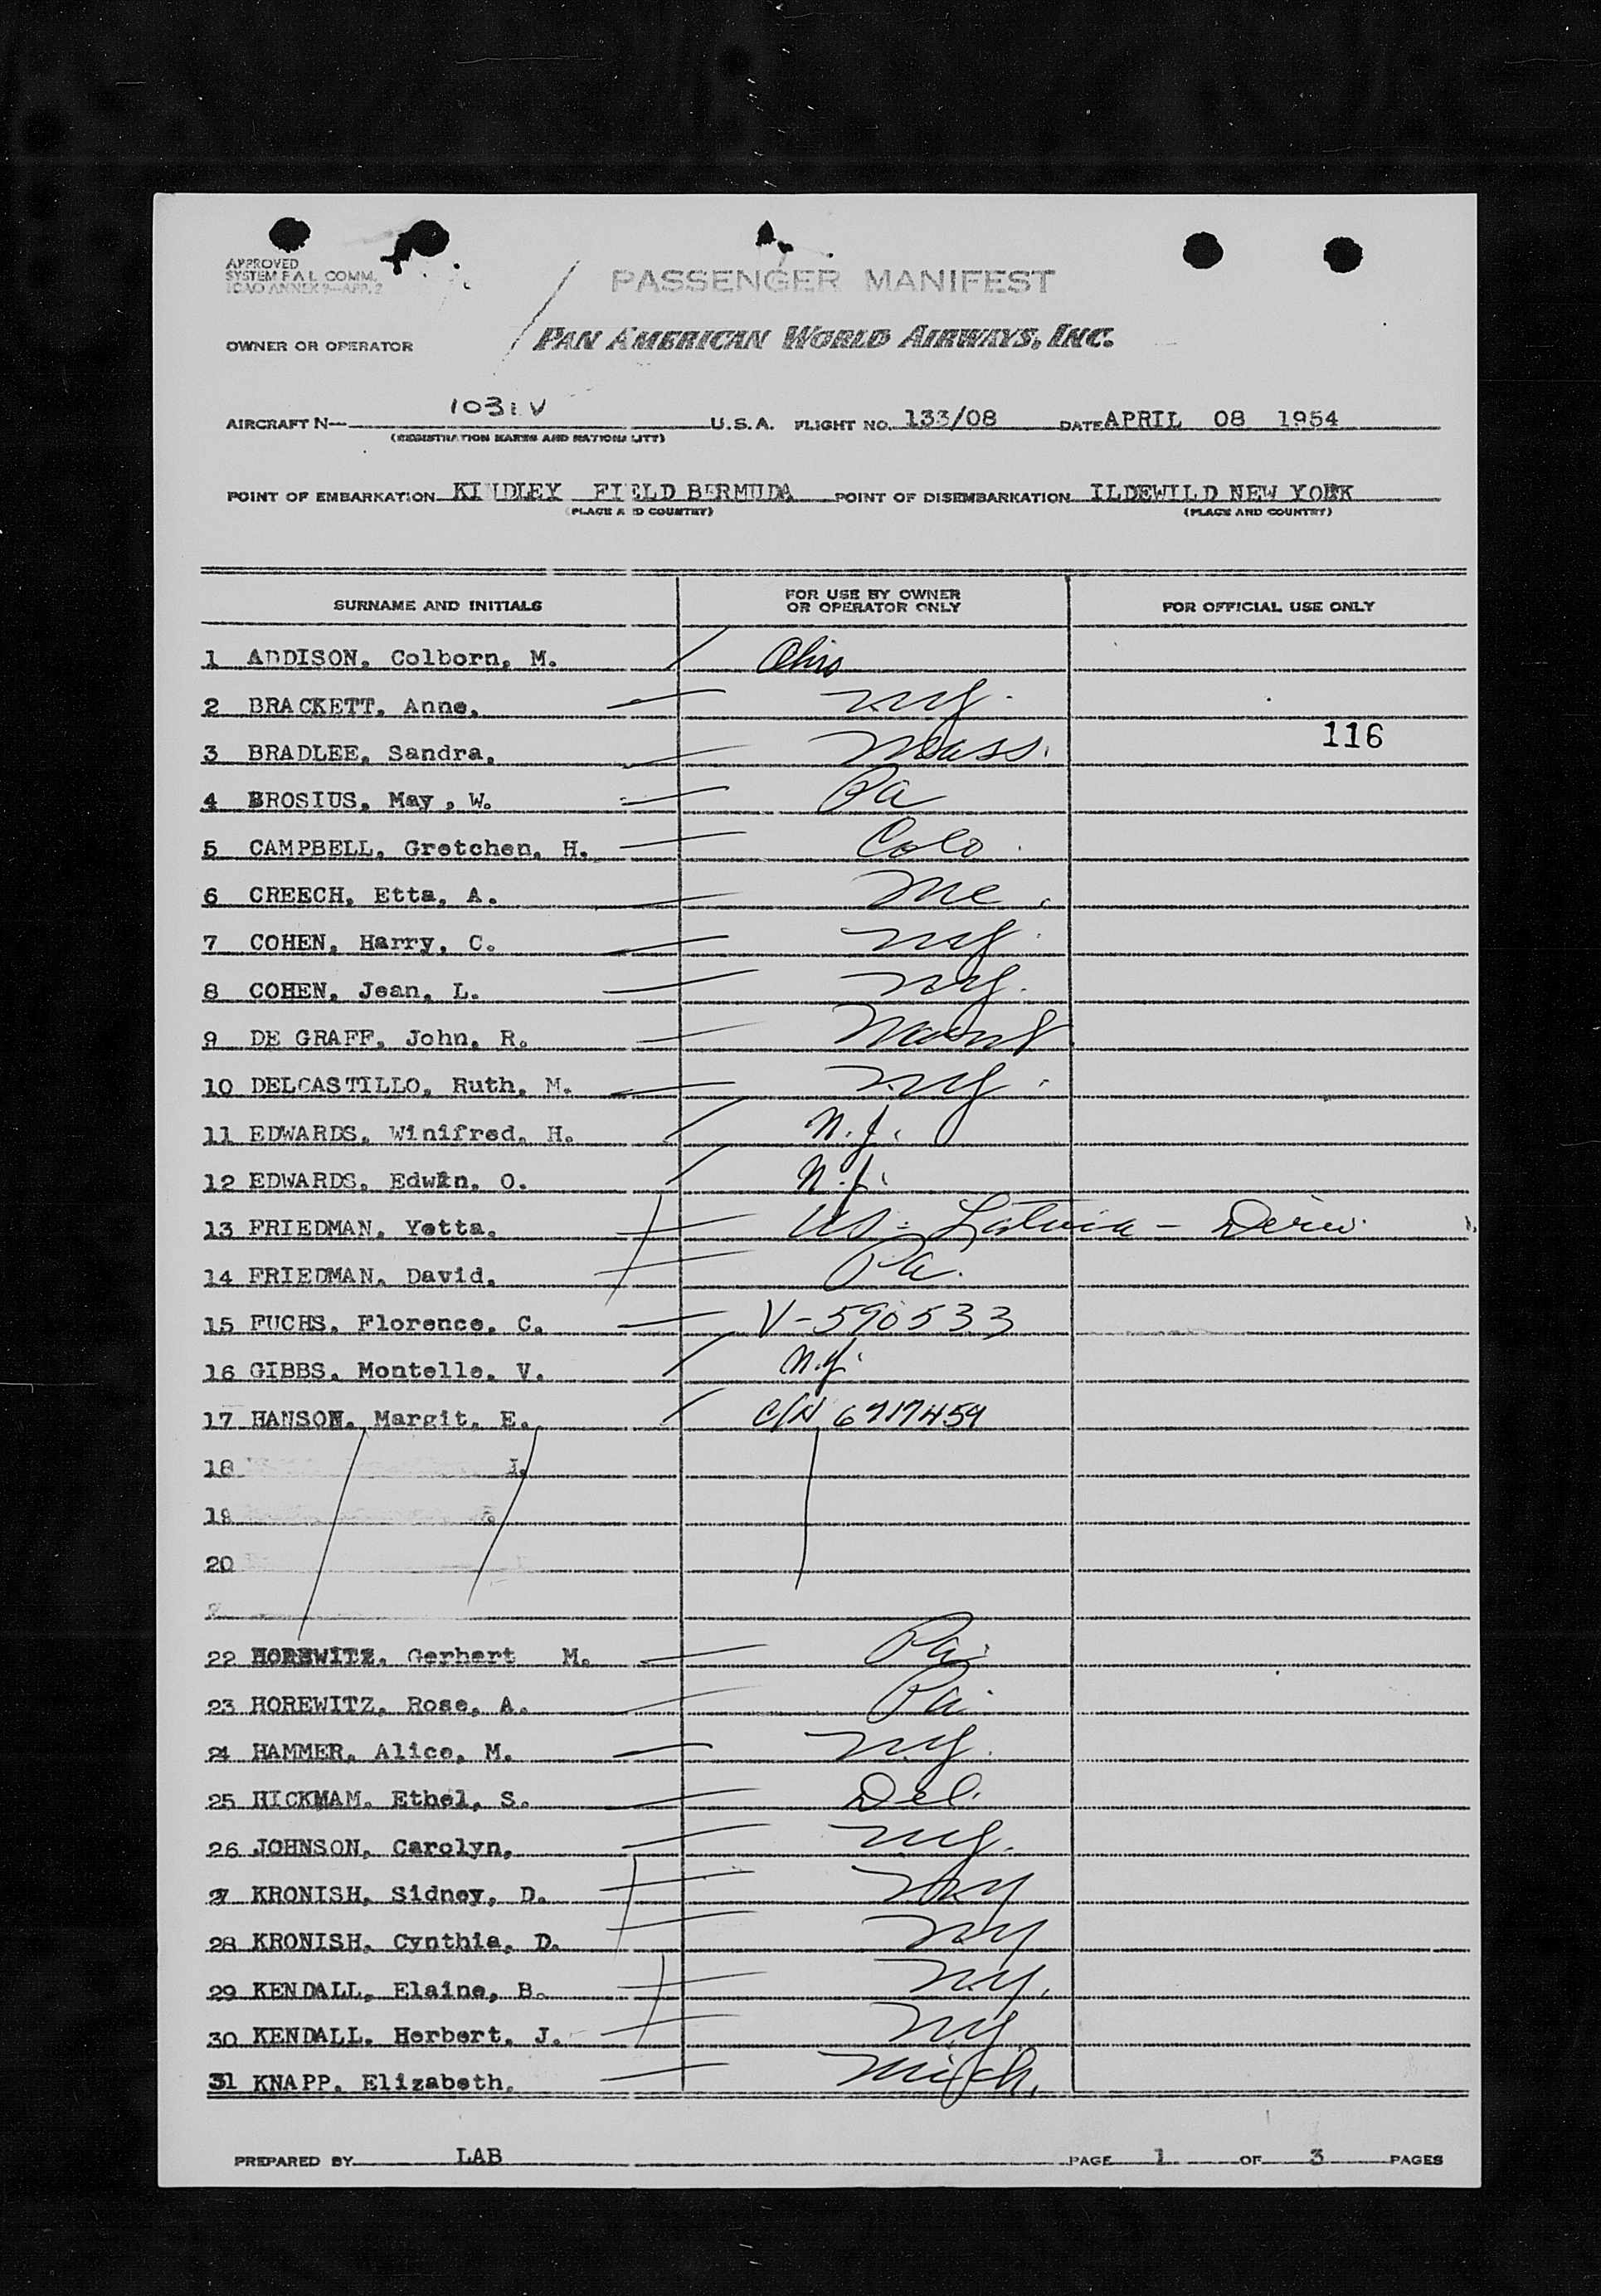 APPROVED
SYSTEM F A L COMM.
ICAO ANNEX 9—APP. 2
PASSENGER MANIFEST
OWNER OR OPERATOR PAN AMERICAN WORLD AIRWAYS, INC.
AIRCRAFT N— 1031V U.S.A. FLIGHT NO. 133/08 DATE APRIL 08 1954
(REGISTRATION MARKS AND NATIONALITY)
POINT OF EMBARKATION KINDLEY FIELD BERMUDA POINT OF DISEMBARKATION ILDEWILD NEW YORK
(PLACE AND COUNTRY) (PLACE AND COUNTRY)
SURNAME AND INITIALS FOR USE BY OWNER OR OPERATOR ONLY FOR OFFICIAL USE ONLY
1 ADDISON, Colborn, M. Ohio
2 BRACKETT, Anne, N.Y.
116
3 BRADLEE, Sandra, Mass.
4 BROSIUS, May, W. Pa
5 CAMPBELL, Gretchen, H. Colo
6 CREECH, Etta, A. Me.
7 COHEN, Harry, C. N.Y.
8 COHEN, Jean, L. N.Y.
9 DE GRAFF, John, R.
10 DELCASTILLO, Ruth, M. N.Y.
11 EDWARDS, Winifred, H. N.J.
12 EDWARDS, Edwin, O. N.J.
13 FRIEDMAN, Yetta. US - Latvia -
14 FRIEDMAN, David, Pa.
15 FUCHS, Florence, C. V-590533
16 GIBBS, Montelle, V. N.Y.
17 HANSON, Margit, E. C/N 6717459
18 I.
19
20
22 HOREWITZ, Gerhert M. Pa.
23 HOREWITZ, Rose, A. Pa.
24 HAMMER, Alice, M. N.Y.
25 HICKMAM, Ethel, S. Del.
26 JOHNSON, Carolyn, N.Y.
27 KRONISH, Sidney, D. N.Y.
28 KRONISH, Cynthia, D. N.Y.
29 KENDALL, Elaine, B. N.Y.
30 KENDALL, Herbert, J. N.Y.
31 KNAPP, Elizabeth, Mich.
PREPARED BY LAB PAGE 1 OF 3 PAGES